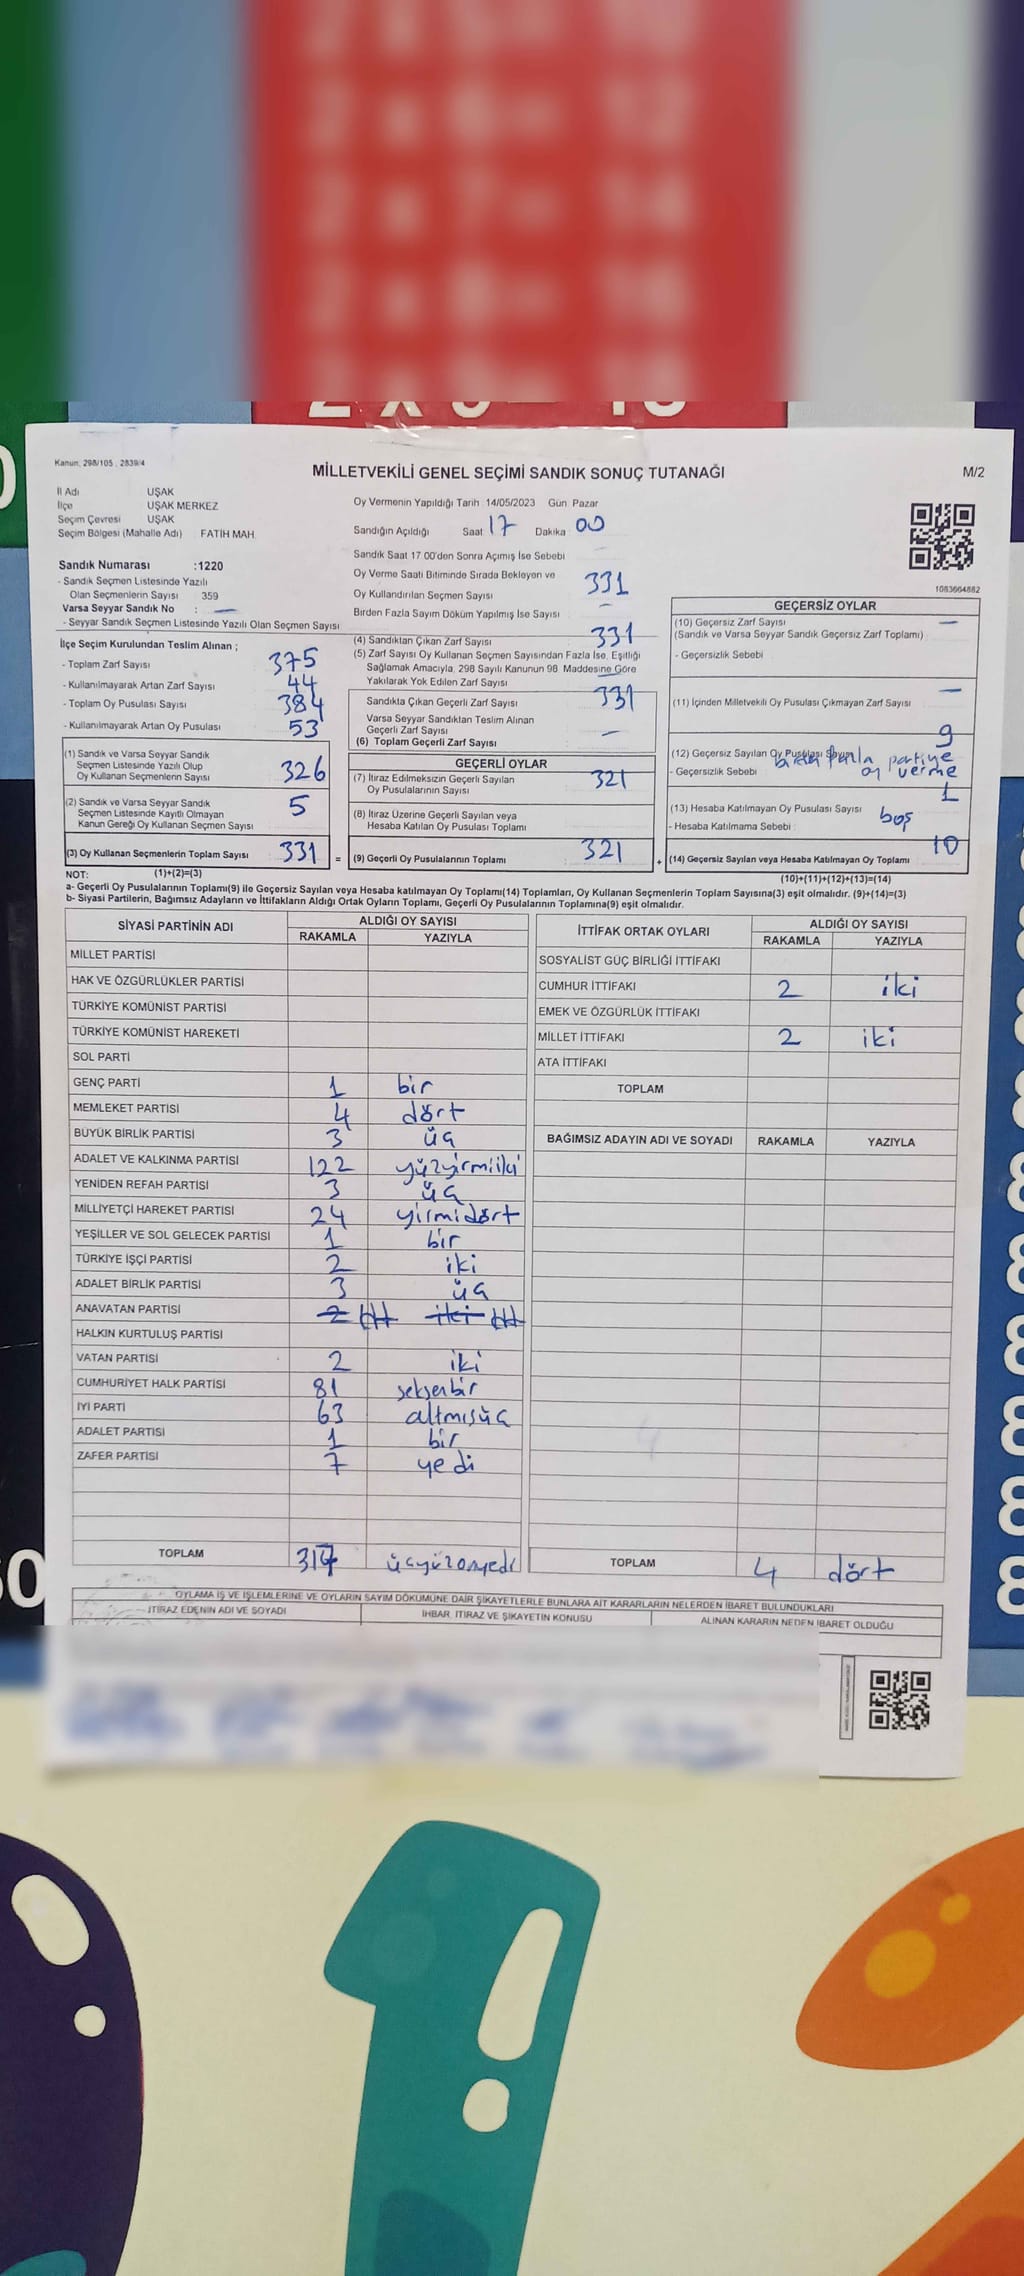 2 x 5 = 10
2 x 6 = 12
2 x 7 = 14
2 x 8 = 16
2 x 9 = 18
Kanun, 298/105, 2839/4
MİLLETVEKİLİ GENEL SEÇİMİ SANDIK SONUÇ TUTANAĞI
M/2
İl Adı UŞAK
İlçe UŞAK MERKEZ
Seçim Çevresi UŞAK
Seçim Bölgesi (Mahalle Adı) FATİH MAH.
Oy Vermenin Yapıldığı Tarih 14/05/2023 Gün Pazar
Sandığın Açıldığı Saat 17 Dakika 00
Sandık Saat 17 00'den Sonra Açımış İse Sebebi
Oy Verme Saati Bitiminde Sırada Bekleyen ve
Oy Kullandırılan Seçmen Sayısı 331
Birden Fazla Sayım Döküm Yapılmış İse Sayısı –
1083664882
Sandık Numarası :1220
- Sandık Seçmen Listesinde Yazılı
Olan Seçmenlerin Sayısı 359
Varsa Seyyar Sandık No : –
- Seyyar Sandık Seçmen Listesinde Yazılı Olan Seçmen Sayısı
İlçe Seçim Kurulundan Teslim Alınan ;
- Toplam Zarf Sayısı 375
- Kullanılmayarak Artan Zarf Sayısı 44
- Toplam Oy Pusulası Sayısı 384
- Kullanılmayarak Artan Oy Pusulası 53
(1) Sandık ve Varsa Seyyar Sandık
Seçmen Listesinde Yazılı Olup
Oy Kullanan Seçmenlerin Sayısı 326
(2) Sandık ve Varsa Seyyar Sandık
Seçmen Listesinde Kayıtlı Olmayan
Kanun Gereği Oy Kullanan Seçmen Sayısı 5
(3) Oy Kullanan Seçmenlerin Toplam Sayısı 331 =
(4) Sandıktan Çıkan Zarf Sayısı 331
(5) Zarf Sayısı Oy Kullanan Seçmen Sayısından Fazla İse, Eşitliği
Sağlamak Amacıyla, 298 Sayılı Kanunun 98. Maddesine Göre
Yakılarak Yok Edilen Zarf Sayısı –
Sandıkta Çıkan Geçerli Zarf Sayısı 331
Varsa Seyyar Sandıktan Teslim Alınan
Geçerli Zarf Sayısı –
(6) Toplam Geçerli Zarf Sayısı
GEÇERLİ OYLAR
(7) İtiraz Edilmeksizin Geçerli Sayılan
Oy Pusulalarının Sayısı 321
(8) İtiraz Üzerine Geçerli Sayılan veya
Hesaba Katılan Oy Pusulası Toplamı
(9) Geçerli Oy Pusulalarının Toplamı 321 +
GEÇERSİZ OYLAR
(10) Geçersiz Zarf Sayısı –
(Sandık ve Varsa Seyyar Sandık Geçersiz Zarf Toplamı)
- Geçersizlik Sebebi
(11) İçinden Milletvekili Oy Pusulası Çıkmayan Zarf Sayısı –
(12) Geçersiz Sayılan Oy Pusulası Sayısı 9
- Geçersizlik Sebebi birden fazla partiye
oy verme
(13) Hesaba Katılmayan Oy Pusulası Sayısı 1
- Hesaba Katılmama Sebebi : boş
(14) Geçersiz Sayılan veya Hesaba Katılmayan Oy Toplamı 10
NOT: (1)+(2)=(3) (10)+(11)+(12)+(13)=(14)
a- Geçerli Oy Pusulalarının Toplamı(9) ile Geçersiz Sayılan veya Hesaba katılmayan Oy Toplamı(14) Toplamları, Oy Kullanan Seçmenlerin Toplam Sayısına(3) eşit olmalıdır. (9)+(14)=(3)
b- Siyasi Partilerin, Bağımsız Adayların ve İttifakların Aldığı Ortak Oyların Toplamı, Geçerli Oy Pusulalarının Toplamına(9) eşit olmalıdır.
SİYASİ PARTİNİN ADI ALDIĞI OY SAYISI
RAKAMLA YAZIYLA
MİLLET PARTİSİ
HAK VE ÖZGÜRLÜKLER PARTİSİ
TÜRKİYE KOMÜNİST PARTİSİ
TÜRKİYE KOMÜNİST HAREKETİ
SOL PARTİ
GENÇ PARTİ 1 bir
MEMLEKET PARTİSİ 4 dört
BÜYÜK BİRLİK PARTİSİ 3 üç
ADALET VE KALKINMA PARTİSİ 122 yüzyirmiiki
YENİDEN REFAH PARTİSİ 3 üç
MİLLİYETÇİ HAREKET PARTİSİ 24 yirmidört
YEŞİLLER VE SOL GELECEK PARTİSİ 1 bir
TÜRKİYE İŞÇİ PARTİSİ 2 iki
ADALET BİRLİK PARTİSİ 3 üç
ANAVATAN PARTİSİ 2 iki
HALKIN KURTULUŞ PARTİSİ
VATAN PARTİSİ 2 iki
CUMHURİYET HALK PARTİSİ 81 seksenbir
İYİ PARTİ 63 altmışüç
ADALET PARTİSİ 1 bir
ZAFER PARTİSİ 7 yedi
TOPLAM 317 üçyüzonyedi
İTTİFAK ORTAK OYLARI ALDIĞI OY SAYISI
RAKAMLA YAZIYLA
SOSYALİST GÜÇ BİRLİĞİ İTTİFAKI
CUMHUR İTTİFAKI 2 iki
EMEK VE ÖZGÜRLÜK İTTİFAKI
MİLLET İTTİFAKI 2 iki
ATA İTTİFAKI
TOPLAM
BAĞIMSIZ ADAYIN ADI VE SOYADI RAKAMLA YAZIYLA
TOPLAM 4 dört
OYLAMA İŞ VE İŞLEMLERİNE VE OYLARIN SAYIM DÖKÜMÜNE DAİR ŞİKAYETLERLE BUNLARA AİT KARARLARIN NELERDEN İBARET BULUNDUKLARI
İTİRAZ EDENİN ADI VE SOYADI İHBAR, İTİRAZ VE ŞİKAYETİN KONUSU ALINAN KARARIN NEDEN İBARET OLDUĞU